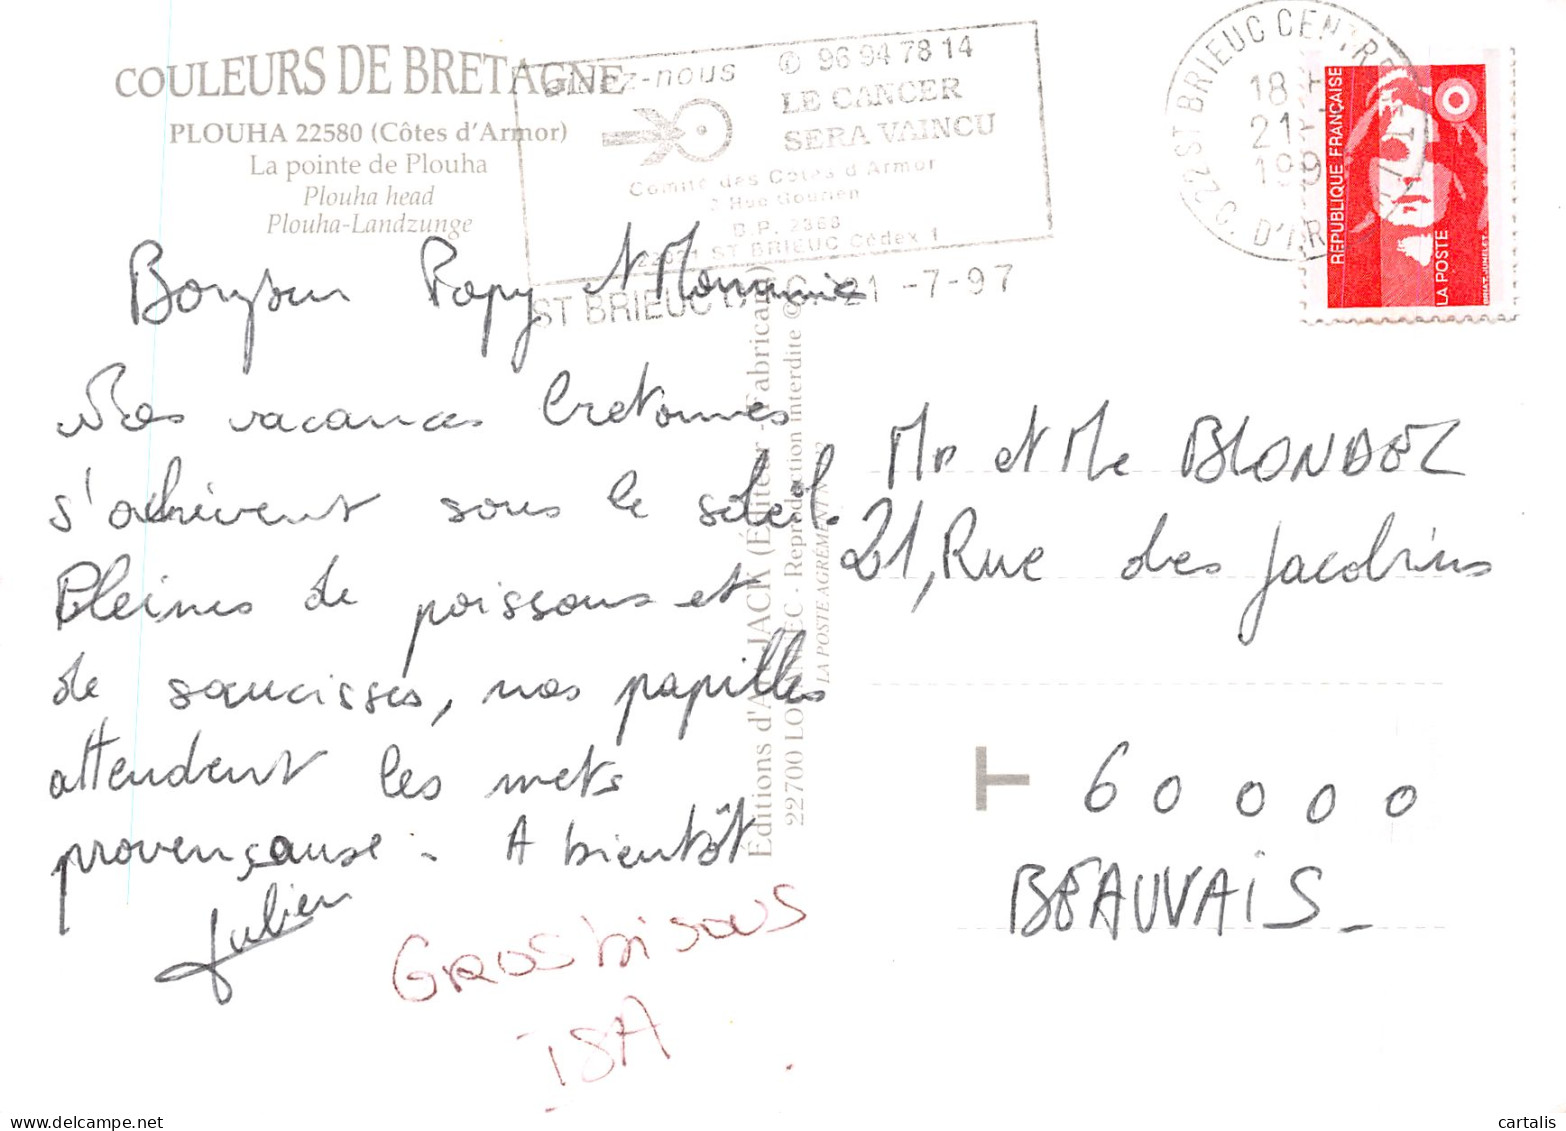 COULEURS DE BRETAGNE
PLOUHA 22580 (Côtes d'Armor)
La pointe de Plouha
Plouha head
Plouha-Landzunge
Aidez-nous ✆ 96 94 78 14
LE CANCER
SERA VAINCU
Comité des Côtes d'Armor
2 Rue Gourien
B.P. 2368
ST BRIEUC Cédex 1
ST BRIEUC 21 -7-97
22 ST BRIEUC CENTRE
C. D'AR
18
21-7
199
REPUBLIQUE FRANÇAISE
LA POSTE
BRIAT-JUMELET
Bonjour Papy et Mamie
Nos vacances bretonnes
s'achèvent sous le soleil.
Pleines de poissons et
de saucisses, nos papilles
attendent les mets
provençause. A bientôt
Julien
GROS bisous
ISA
Éditions d'Art JACK (Éditeur - Fabricant)
22700 LOUANNEC - Reproduction interdite ©
LA POSTE AGRÉMENT N°
Mr et Me BLONDEL
21, Rue des Jacobins
T 60000
BEAUVAIS -
cartalis